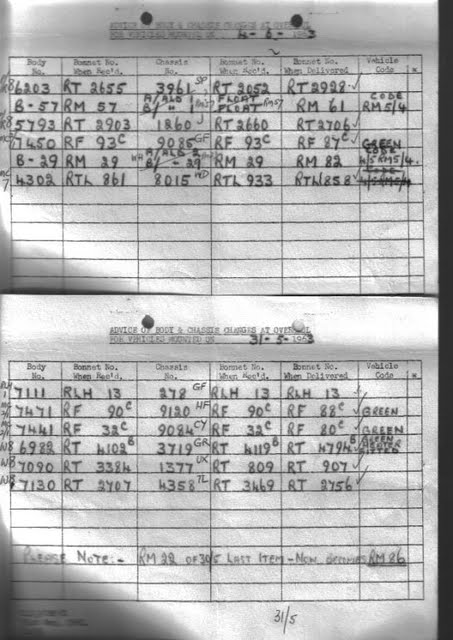 ADVICE OF BODY & CHASSIS CHANGES AT OVERHAUL
FOR VEHICLES MOUNTED ON 4-6-1963
Body No. Bonnet No. When Rec'd. Chassis No. Bonnet No. When Rec'd. Bonnet No. When Delivered Vehicle Code *
6203 RT 2655 3961 SP RT 2052 RT 2928
B-57 RM 57 FLOAT FLOAT RM57 RM 61 CODE RM5/4
5793 RT 2903 1260 J RT 2660 RT 2706
7450 RF 93C 9085 GF RF 93C RF 87C GREEN
B-29 RM 29 RM 29 RM 82 CODE 4/5RM5/4.
4302 RTL 861 8015 WD RTL 933 RTL 858
ADVICE OF BODY & CHASSIS CHANGES AT OVERHAUL
FOR VEHICLES MOUNTED ON 31-5-1963
Body No. Bonnet No. When Rec'd. Chassis No. Bonnet No. When Rec'd. Bonnet No. When Delivered Vehicle Code *
7111 RLH 13 278 GF RLH 13 RLH 13
7471 RF 90C 9120 HF RF 90C RF 88C GREEN
7441 RF 32C 9084 CY RF 32C RF 80C GREEN
W8 6982 RT 4102B 3719 GR RT 4119B RT 4794B GREEN
W8 7090 RT 3384 1377 UX RT 809 RT 907
W8 7130 RT 2707 4358 TL RT 3469 RT 2756
PLEASE NOTE:- RM 22 OF 30/5 LAST ITEM - NOW BECOMES RM 86
31/5